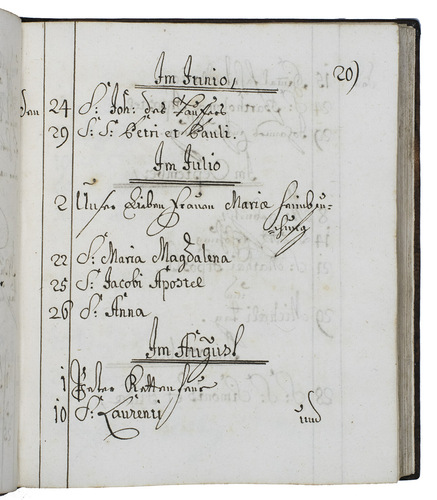 20)
Im Junio,
den 24 S: Joh: des Tauffers
29 S: S: Petri et Pauli.
Im Julio
2 Unser Lieben Frauen Mariæ Heimbsu-
chung
22 S: Maria Magdalena
25 S: Jacobi Apostel
26 S: Anna
Im August
1 Peter Kettenfeur
10 S: Laurentij
und